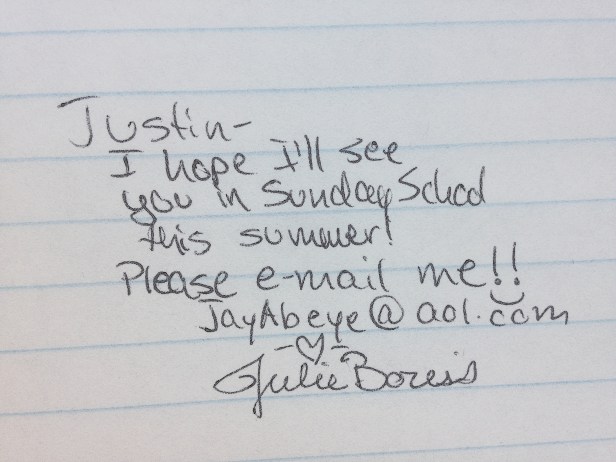 Justin-
I hope I'll see
you in Sunday School
this summer!
Please e-mail me!!
JayAbeye@aol.com
-♡-
Julie